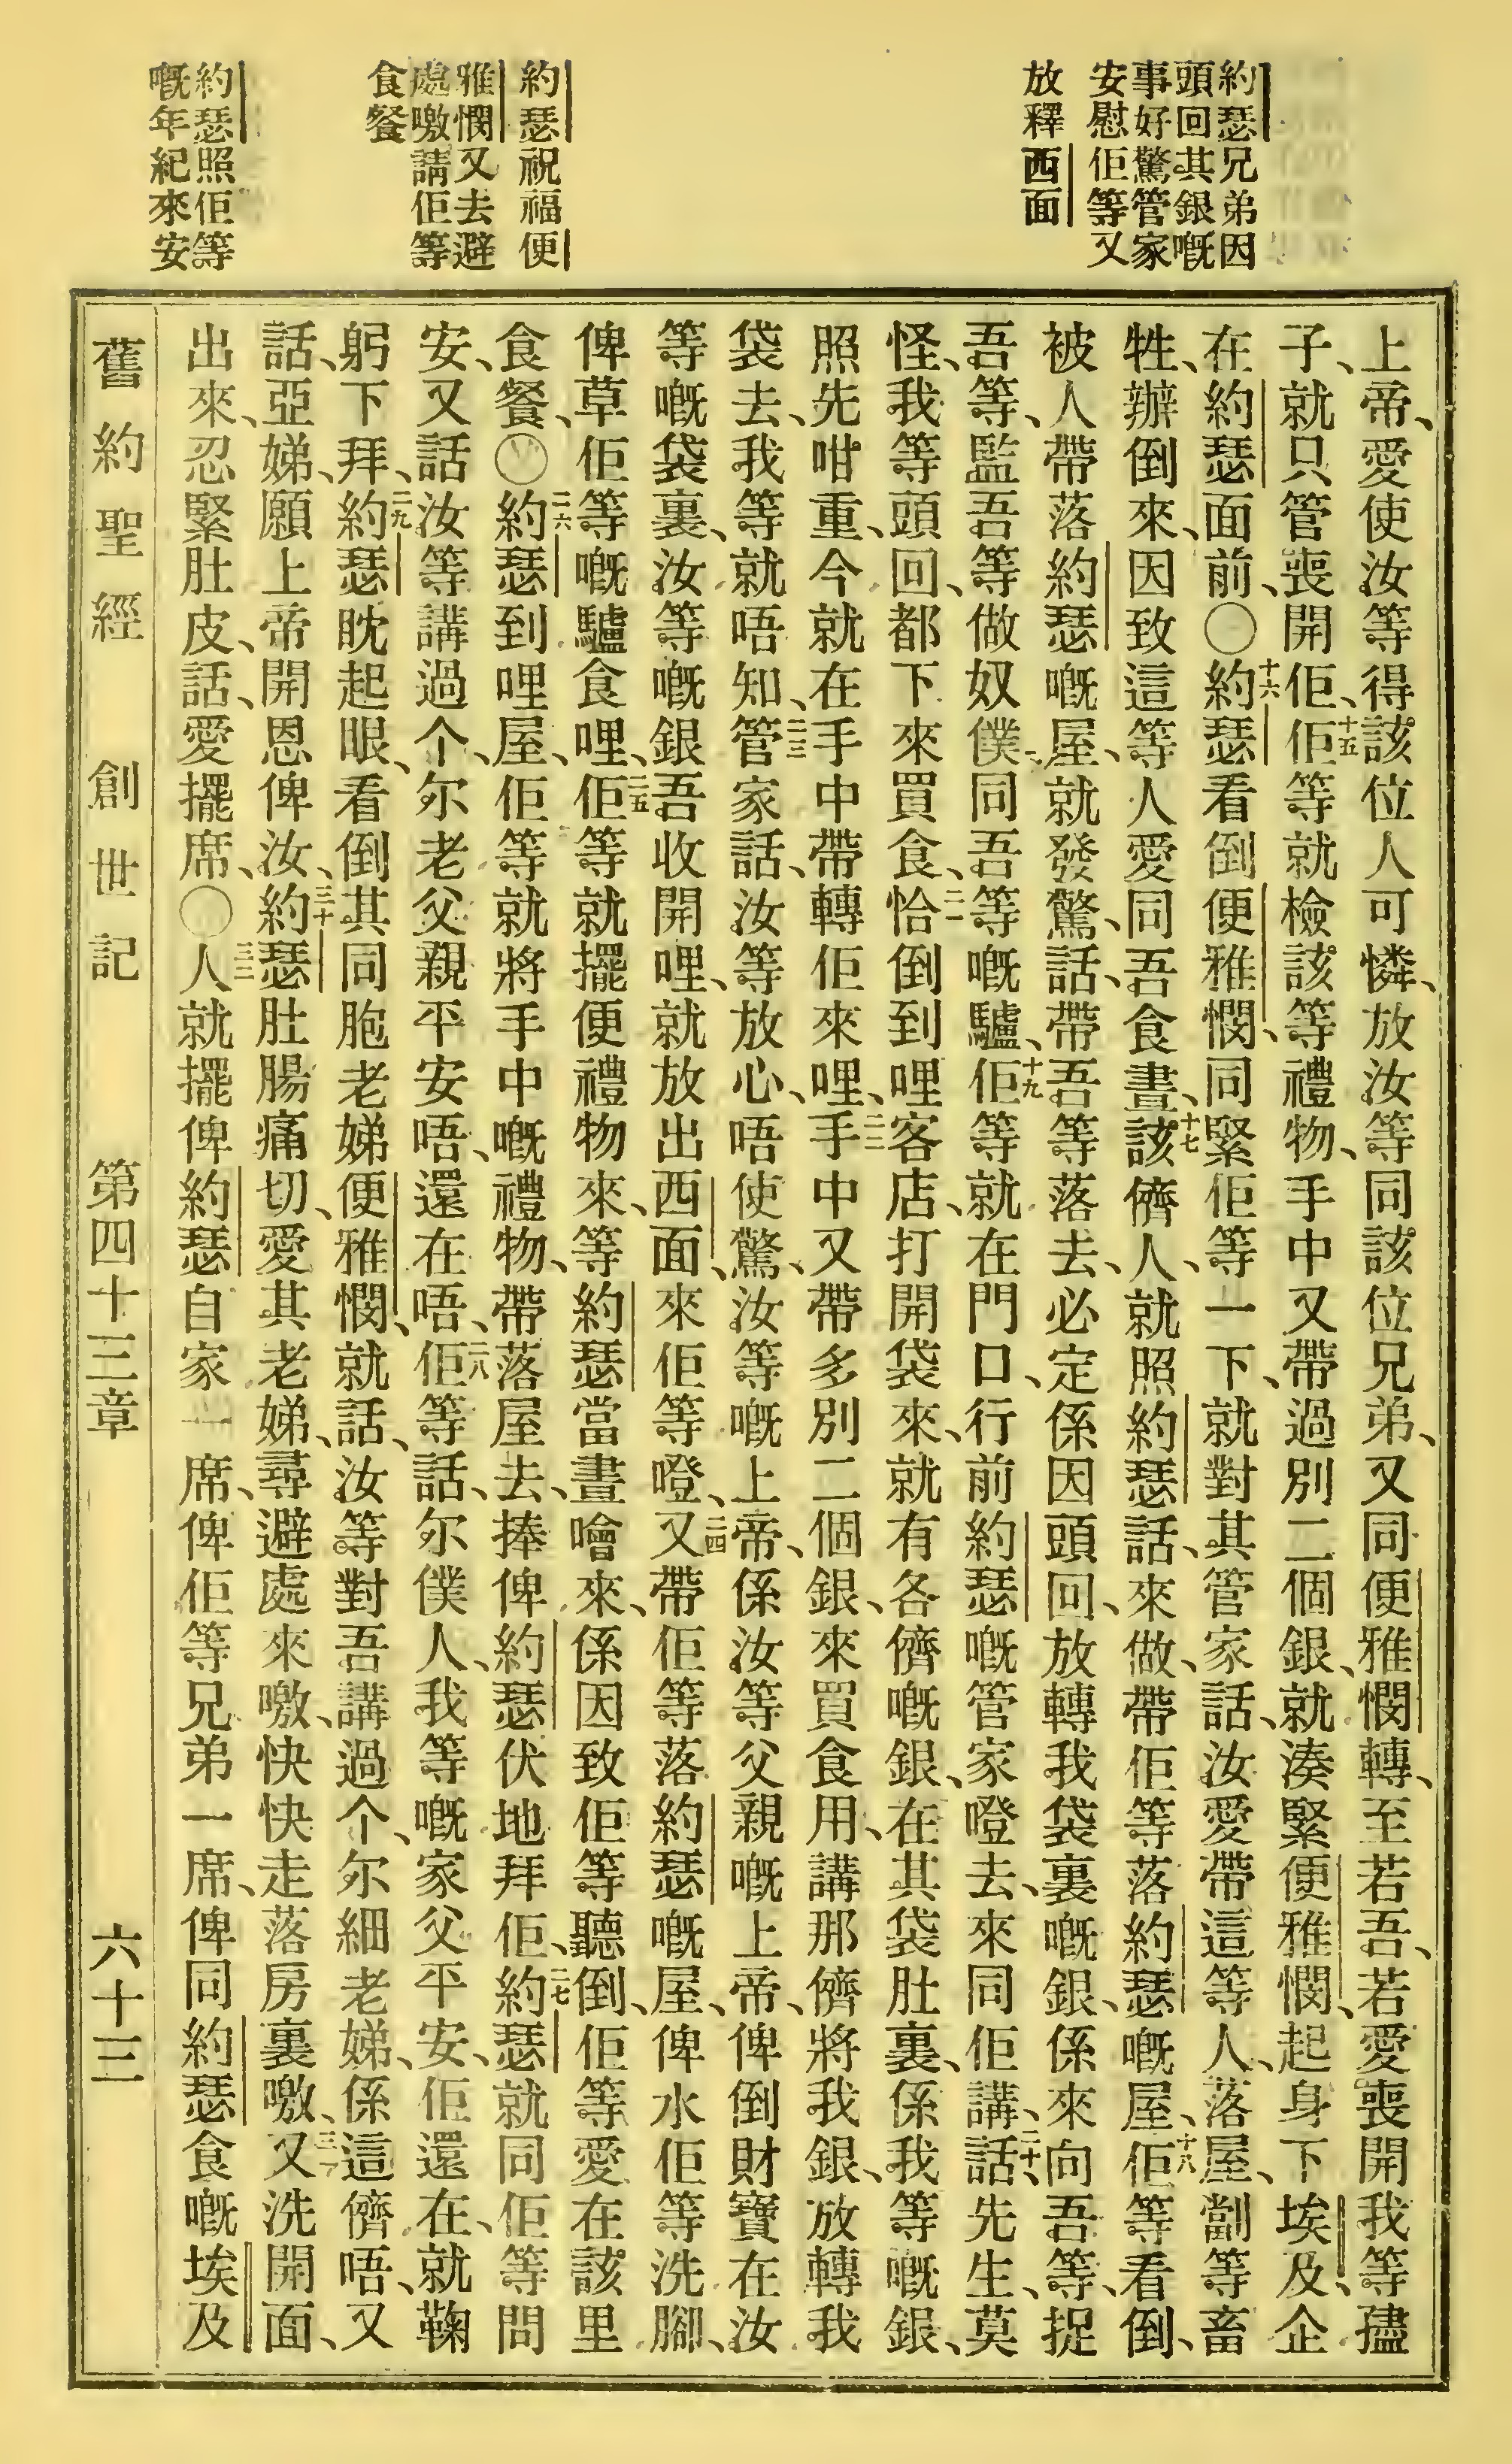 約瑟兄弟因
頭回其銀嘅
事好驚管家
安慰佢等又
放釋西面
約瑟祝福便
雅憫又去避
處噭請佢等
食餐
約瑟照佢等
嘅年紀來安
上帝、愛使汝等得該位人可憐、放汝等同該位兄弟、又同便雅憫轉、至若吾、若愛喪開我等孻
子、就只管喪開佢、十五佢等就檢該等禮物、手中又帶過別二個銀、就湊緊便雅憫、起身下埃及、企
在約瑟面前、〇十六約瑟看倒便雅憫、同緊佢等一下、就對其管家話、汝愛帶這等人、落屋、劏等畜
牲、辦倒來、因致這等人愛同吾食晝、十七該儕人、就照約瑟話、來做、帶佢等落約瑟嘅屋、十八佢等看倒、
被人帶落約瑟嘅屋、就發驚、話、帶吾等落去、必定係因頭回、放轉我袋裏嘅銀、係來向吾等、捉
吾等、監吾等做奴僕、同吾等嘅驢、十九佢等、就在門口、行前約瑟嘅管家嶝去、來同佢講、二十話、先生、莫
怪、我等頭回、都下來買食、二一恰倒到哩客店、打開袋來、就有各儕嘅銀、在其袋肚裏、係我等嘅銀、
照先咁重、今就在手中帶轉佢來哩、二二手中又帶多別二個銀、來買食用、講那儕將我銀、放轉我
袋去、我等就唔知、二三管家話、汝等放心、唔使驚、汝等嘅上帝、係汝等父親嘅上帝、俾倒財寶在汝
等嘅袋裏、汝等嘅銀吾收開哩、就放出西面、來佢等嶝、二四又帶佢等落約瑟嘅屋、俾水佢等洗腳、
俾草佢等嘅驢食哩、二五佢等就擺便禮物來、等約瑟當晝噲來、係因致佢等聽倒、佢等愛在該里
食餐、〇二六約瑟到哩屋、佢等就將手中嘅禮物、帶落屋去、捧俾約瑟伏地拜佢、二七約瑟就同佢等問
安、又話汝等講過个、尔老父親平安唔、還在唔、二八佢等話、尔僕人、我等嘅家父平安、佢還在、就鞠
躬下拜、二九約瑟眈起眼、看倒其同胞老娣便雅憫、就話、汝等對吾講過个、尔細老娣、係這儕唔、又
話、亞娣、願上帝開恩俾汝、三十約瑟肚腸痛切、愛其老娣、尋避處來噭、快快走落房裏噭、三一又洗開面、
出來、忍緊肚皮、話、愛擺席、〇三二人就擺俾約瑟自家一席、俾佢等兄弟一席、俾同約瑟食嘅埃及
舊約聖經　創世記　第四十三章　六十三